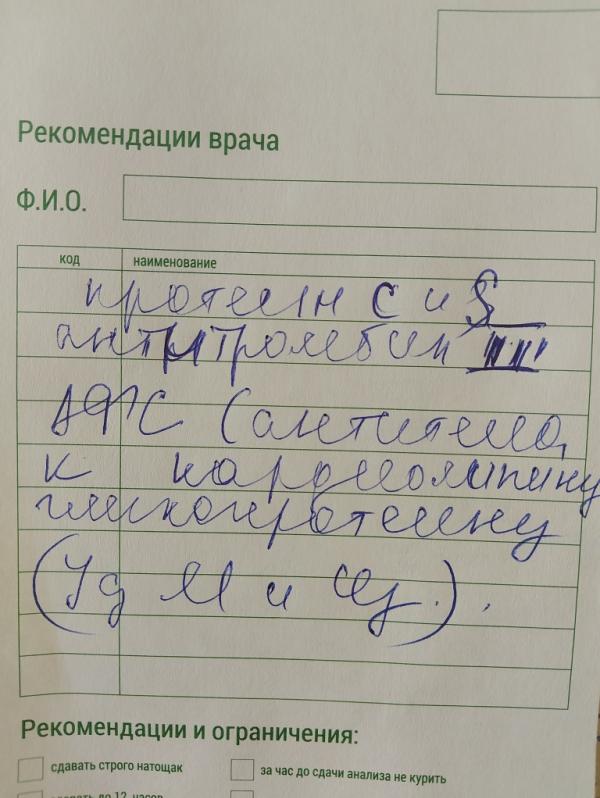 Рекомендации врача
Ф.И.О.
код наименование
протеин С и S
антитромбин III
АФС (антитела
к кардиолипину
гликопротеину
(Ig M и Ig).
Рекомендации и ограничения:
сдавать строго натощак
за час до сдачи анализа не курить